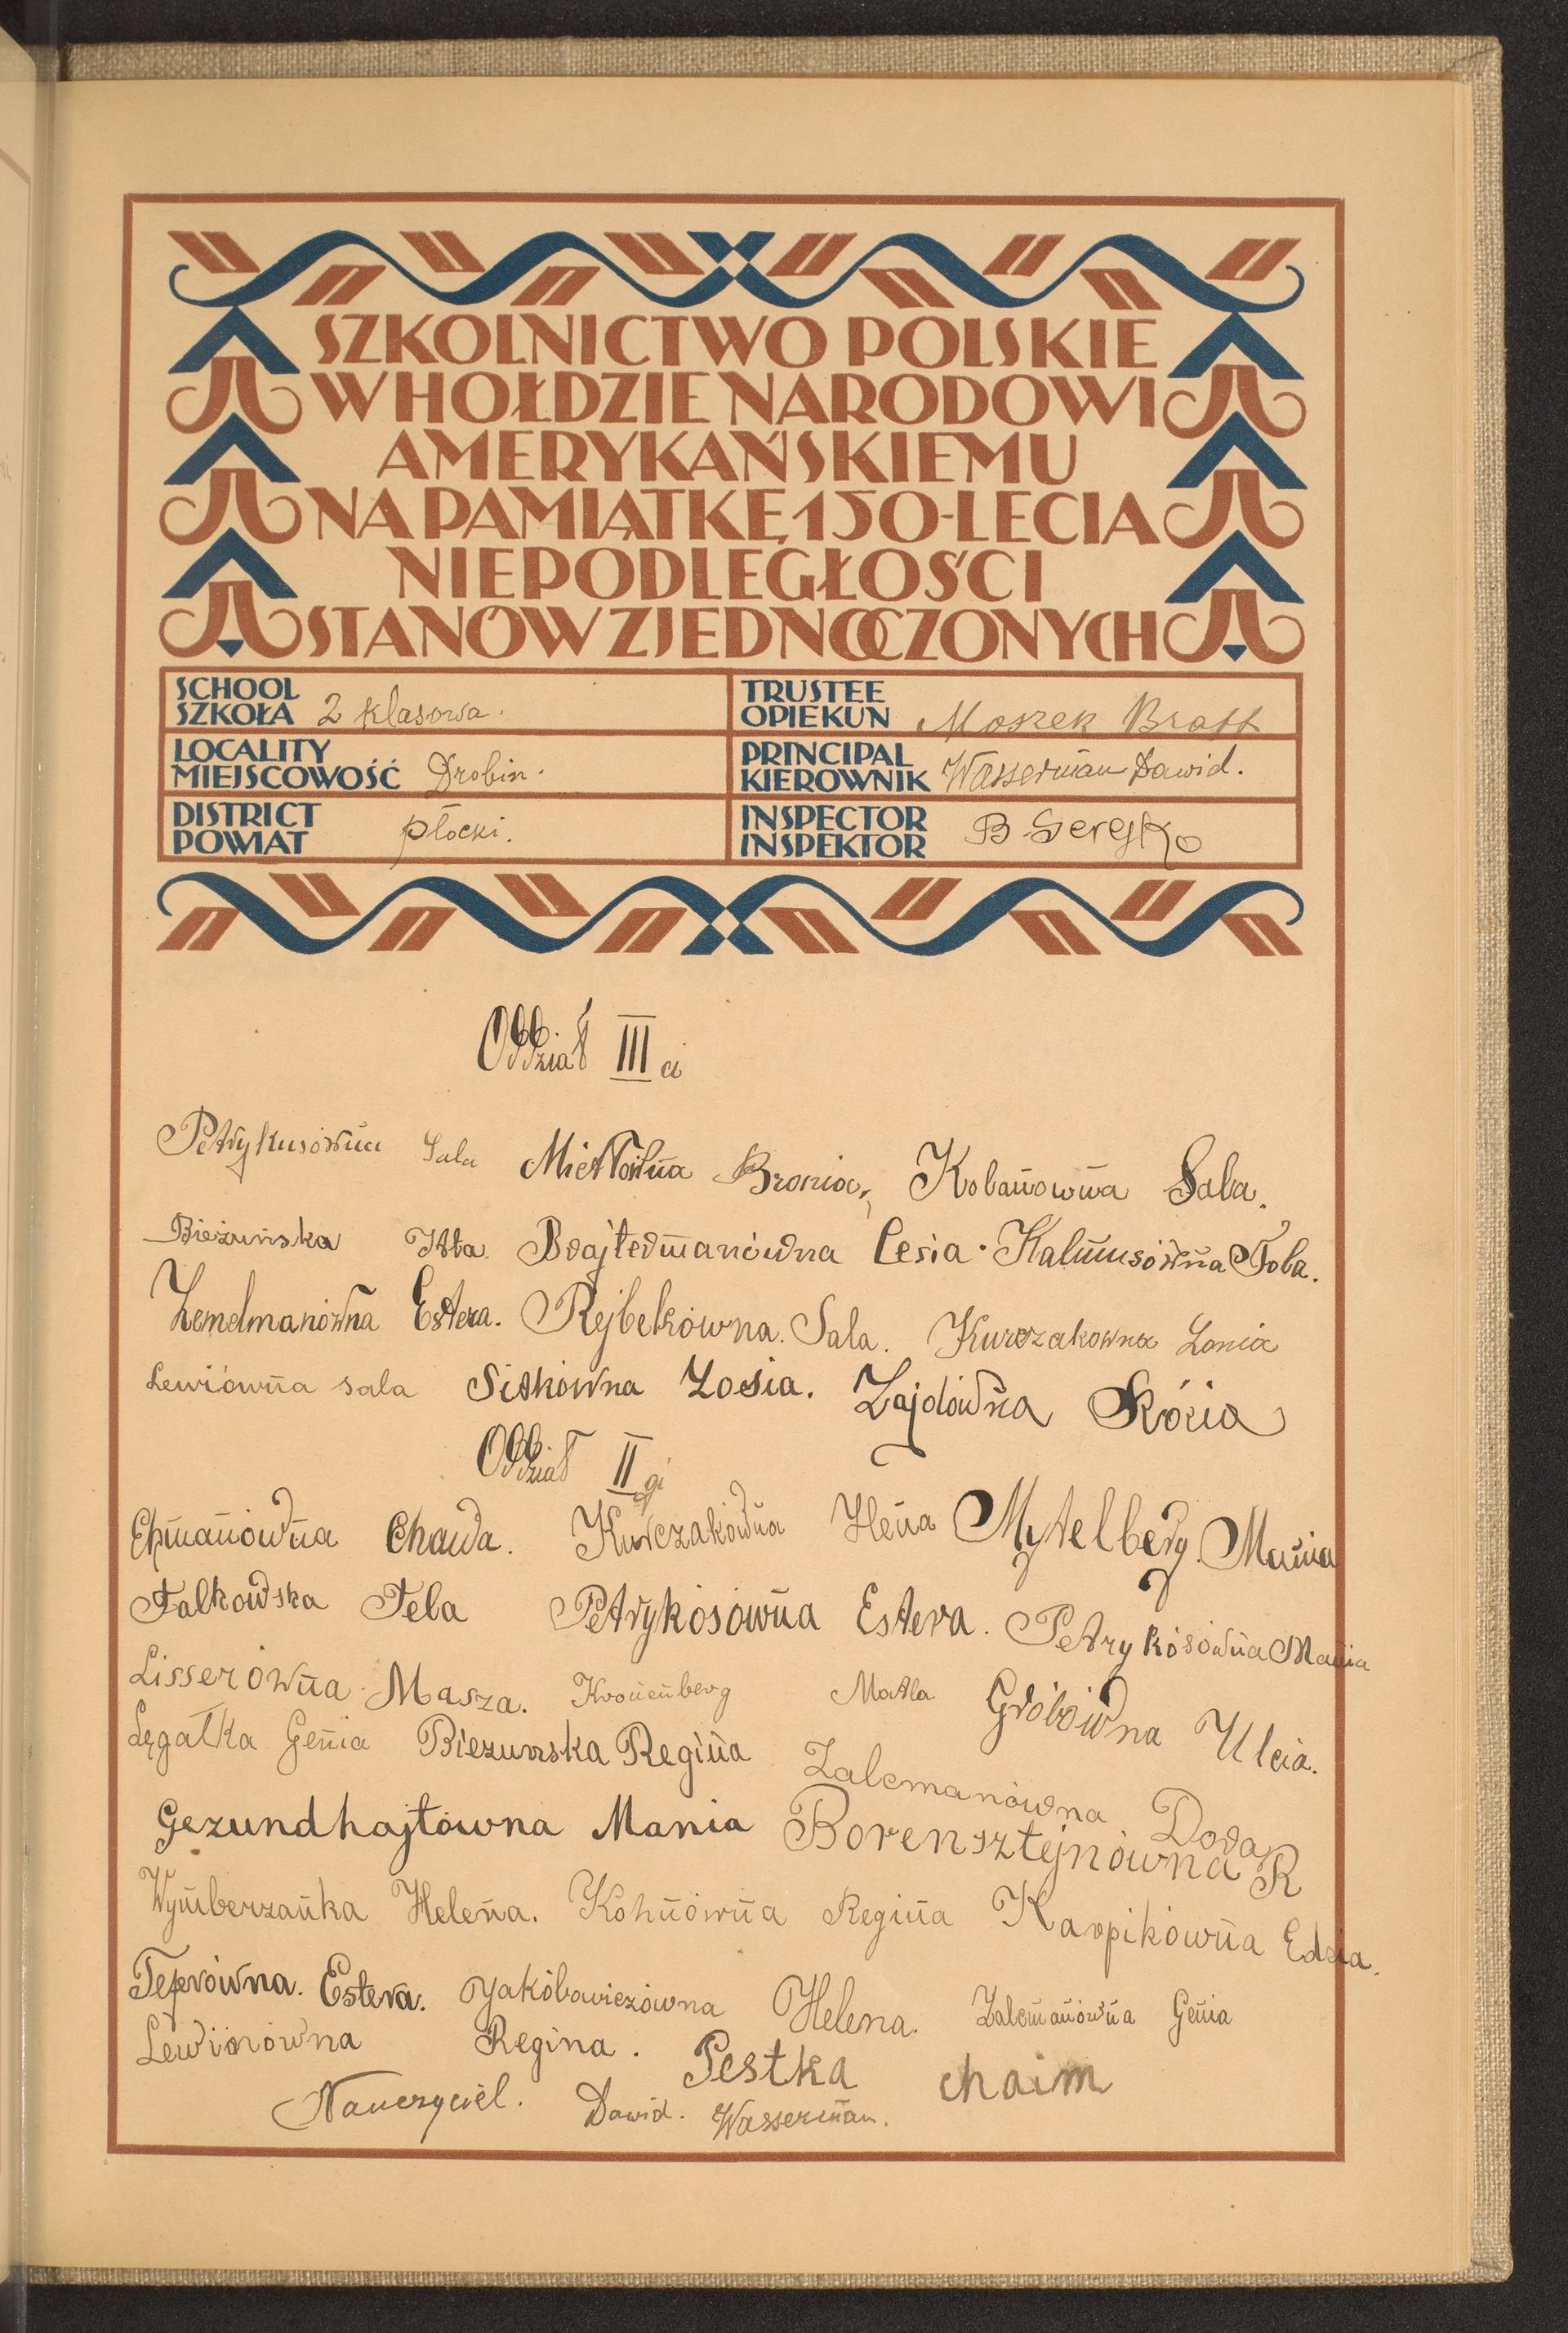 SZKOLNICTWO POLSKIE
W HOŁDZIE NARODOWI
AMERYKAŃSKIEMU
NA PAMIĄTKĘ 150-LECIA
NIEPODLEGŁOŚCI
STANÓW ZJEDNOCZONYCH
SCHOOL
SZKOŁA 2 klasowa.
TRUSTEE
OPIEKUN Moszek Bratt
LOCALITY
MIEJSCOWOŚĆ Drobin.
PRINCIPAL
KIEROWNIK Wasserman Dawid.
DISTRICT
POWIAT płocki.
INSPECTOR
INSPEKTOR B Serejko
Oddział III ci
Petrykusówna Sala Mietłówna Bronia, Kobanowna Saba.
Bieżuńska Itta. Brajtermanówna Cesia. Kalmusówna Toba.
Zemelmanówna Estera. Rejbekówna. Sala. Kurczakowna Lonia
Lewiówna sala Sitkówna Zosia. Zajdówna Rózia
Oddział II gi
Chmanówna Chawa. Kurczakówna Hena Mytelberg. Mania
Falkowska Fela Petrykosówna Estera. Petrykosówna Mania
Lisserówna Masza. Kronenberg Matla Gróbówna Ulcia.
Łęgatka Genia Biezunska Regina Zalcmanówna Dora
Gezundhajtówna Mania Borensztejnówna R
Wymberzanka Helena. Kohnówna Regina Karpikówna Edzia.
Teprówna. Estera. Jakóbowiczówna Helena. Zalcmanówna Genia
Lewinówna Regina. Pestka chaim
Nauczyciel. Dawid. Wasserman.